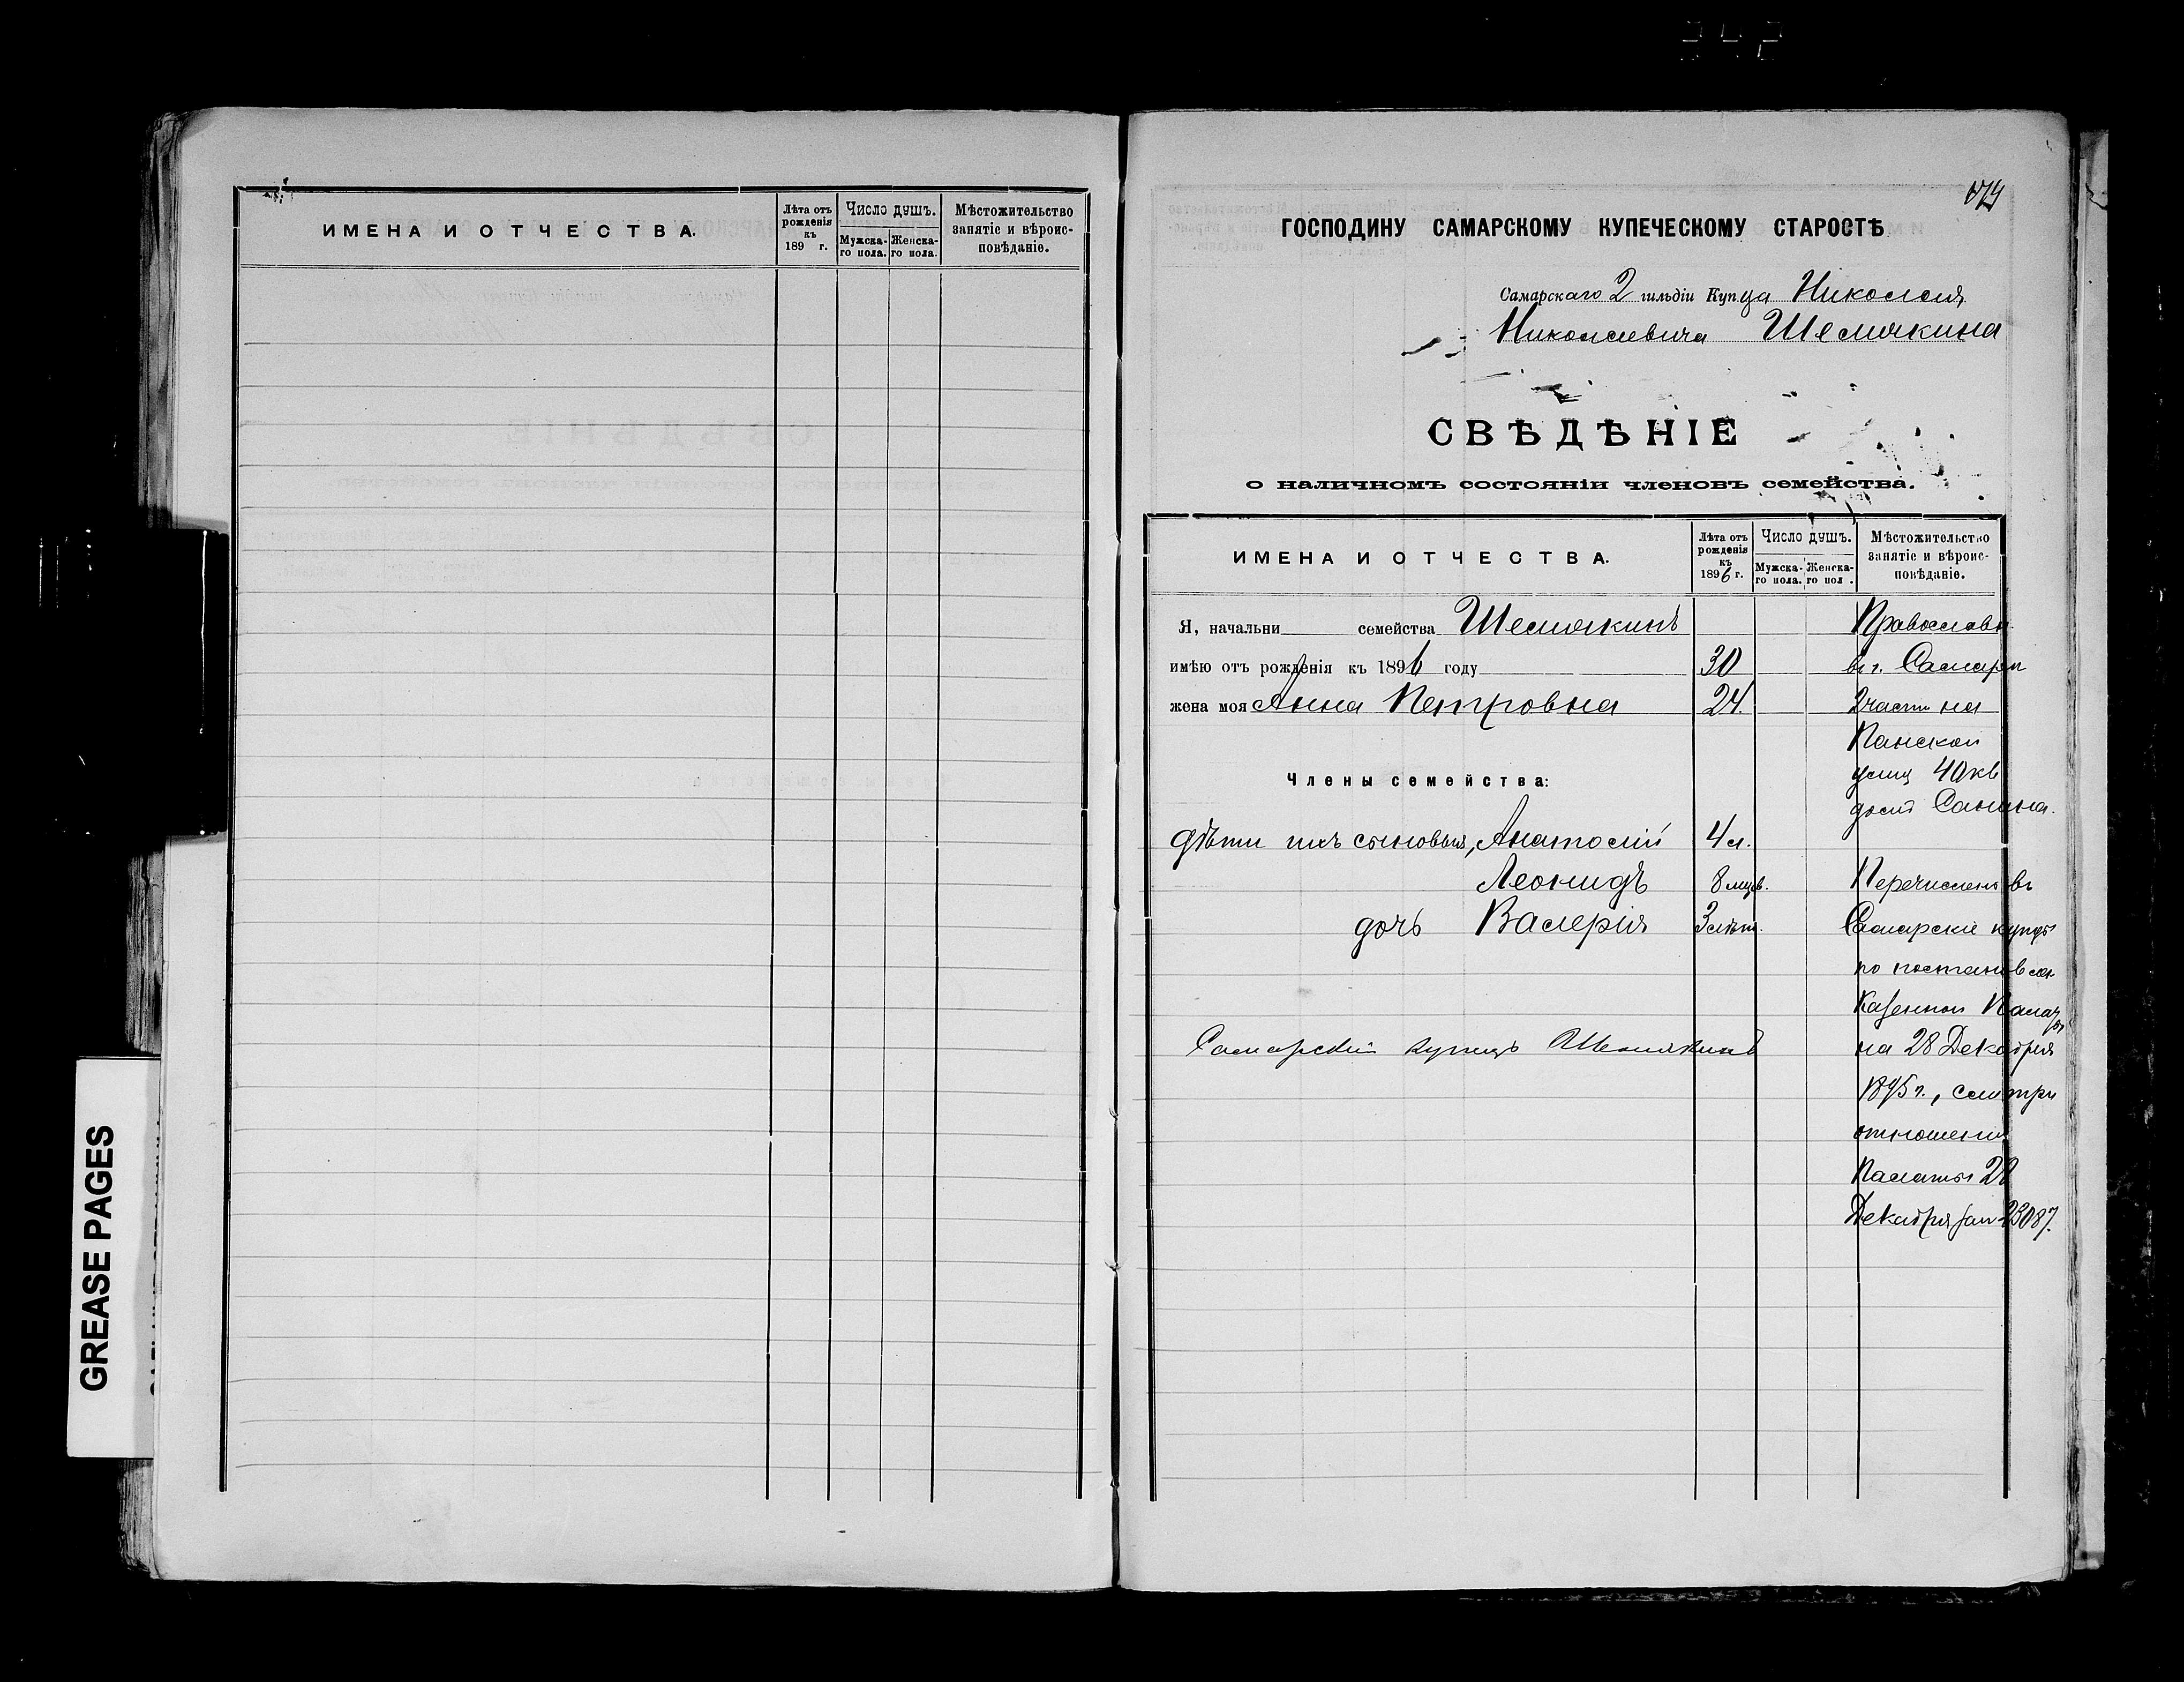 ИМЕНА И ОТЧЕСТВА.
Лѣта отъ рожденія къ 189 г.
Число душъ.
Мужска-го пола.
Женска-го пола.
Мѣстожительство занятіе и вѣроис-повѣданіе.
GREASE PAGES
ГОСПОДИНУ САМАРСКОМУ КУПЕЧЕСКОМУ СТАРОСТѢ
Самарскаго 2 гильдіи Купца Николая
Николаевича Шемякина
СВѢДѢНІЕ
о наличномъ состояніи членовъ семейства.
ИМЕНА И ОТЧЕСТВА.
Лѣта отъ рожденія къ 1896 г.
Число душъ.
Мужска-го пола.
Женска-го пол .
Мѣстожительство занятіе и вѣроис-повѣданіе.
Я, начальни семейства Шемякинъ
Православн.
имѣю отъ рожденія къ 1896 году 30
въ г. Самарѣ
жена моя Анна Петровна 24.
2 части на
Панской
улиц 40 кв
Члены семейства:
домъ Санина.
дѣти ихъ сыновья, Анатолій 4 л.
Леонидъ 8 мцѣв.
Перечисленъ въ
дочь Валерія 3 лѣтъ.
Самарскіе купцы
по постановлен
Казенной Палаты
Самарскій купецъ Шемякинъ
на 28 Декабря
1895 г., смотри
отношеніе
Палаты 28
Декабря за № 23087.